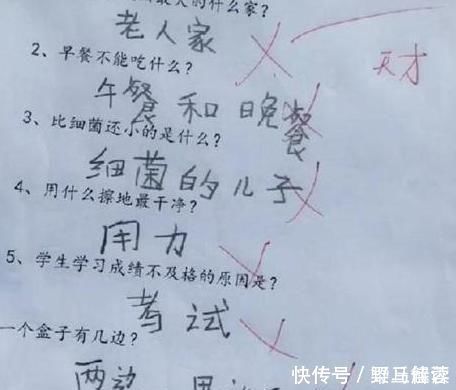 最大的什么家？
老人家
天才
2、早餐不能吃什么？
午餐和晚餐
3、比细菌还小的是什么？
细菌的儿子
4、用什么擦地最干净？
用力
5、学生学习成绩不及格的原因是？
考试
一个盒子有几边？
两边
快传号/